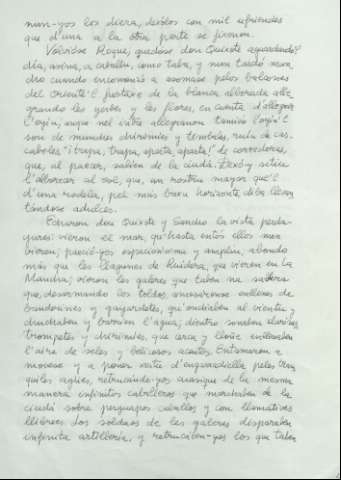 nun-yos los diera, dexólos con mil ufriendes
que d'una a la otra parte se ficieron.
Volvióse Roque; quedóse don Quixote aguardando'l
día, asina, a caballu, como taba, y nun tardó mun
cho cuando encomenzó a asomase pelos balcones
del Oriente'l postrexe de la blanca alborada alle
grando les yerbes y les flores, en cuenta d'allegrar
l'oyíu, anque nel intre allegraron tamién l'oyíu'l
son de munches chirimíes y tambales, ruíu de cas
cabeles "¡trapa, trapa, aparta aparta!" de corredores,
que, al paecer, salíen de la ciudá. Dexó-y sitiu
l'alborecer al sol, que, un rostru mayor que'l
d'una rodela, pel más baxu horizonte diba llevan
tándose adulces.
Echaron don Quixote y Sancho la vista perda
yures: vieron el mar, qu'hasta entós elles nun
vieren; paeció-yos espaciosismu y ampliu, abondo
más que les llagunes de Ruidera, que vieren en La
Mancha; vieron les galeres que taben na
que, desarmando los toldos, amosáronse enllenes de
banderines y gayardetes, qu'ondiaben al vientu y
chuchaben y barríen l'agua; dientro sonaben clarinos,
trompetes y chirimíes, que cerca y lloñe enllenaben
l'aire de seles y belicosos acentos. Entamaron a
movese y a poner xeitu d'engarradiella peles tran
quiles agües, retrucando-yos cuasique de la mesma
manera infinitos caballeros que marchaben de la
ciudá sobre perguapos caballos y con llamatives
llibrees. Los soldaos de les galeres disparaben
infinita artillería, y retrucaben-yos los que taben